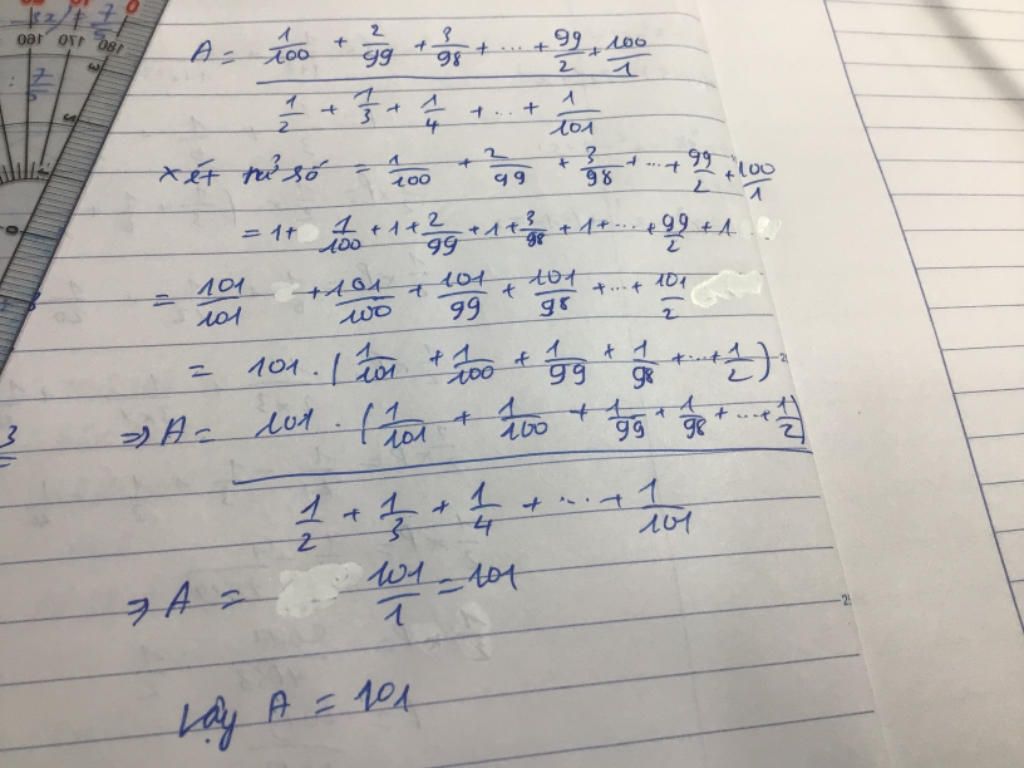 A = 1/100 + 2/99 + 3/98 + ... + 99/2 + 100/1
1/2 + 1/3 + 1/4 + ... + 1/101
xét tử số = 1/100 + 2/99 + 3/98 + ... + 99/2 + 100/1
= 1 + 1/100 + 1 + 2/99 + 1 + 3/98 + 1 + ... + 99/2 + 1
= 101/101 + 101/100 + 101/99 + 101/98 + ... + 101/2
= 101 . (1/101 + 1/100 + 1/99 + 1/98 + ... + 1/2)
⇒ A = 101 . (1/101 + 1/100 + 1/99 + 1/98 + ... + 1/2)
1/2 + 1/3 + 1/4 + ... + 1/101
⇒ A = 101/1 = 101
Vậy A = 101
180 170 160